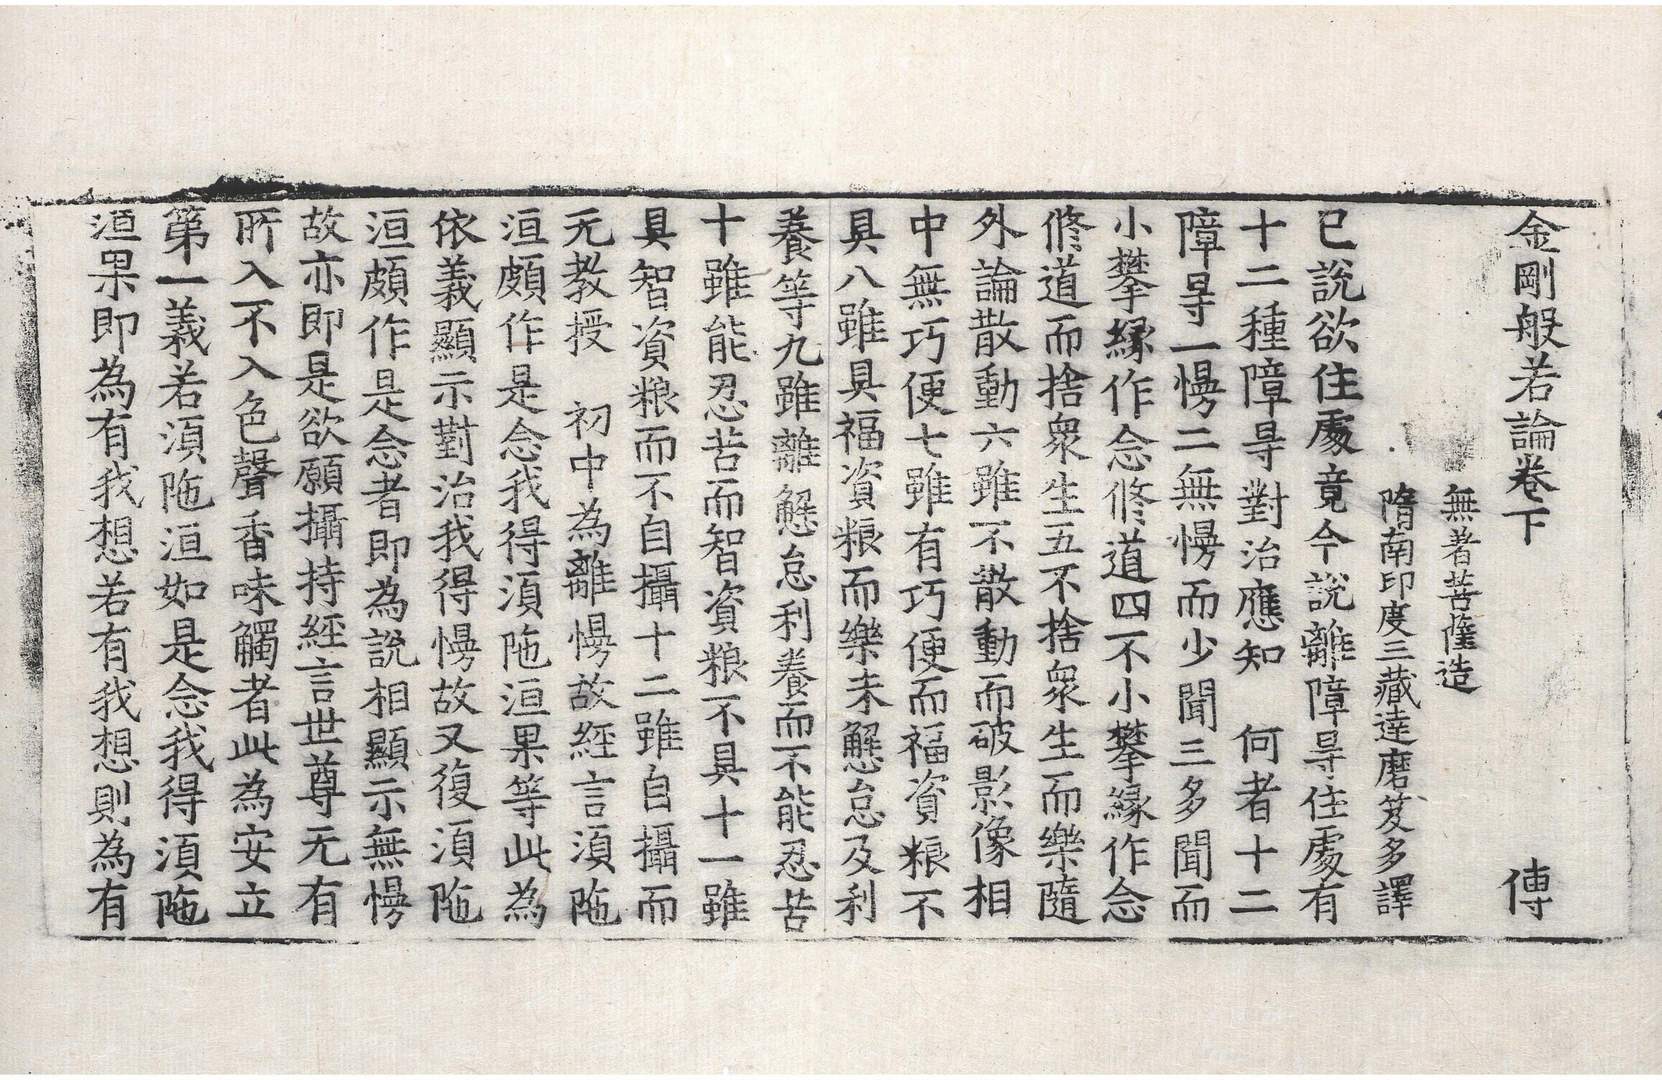 金剛般若論卷下　傳
無著菩薩造
隋南印度三藏達磨笈多譯
已說欲住處竟今說離障㝵住處有
十二種障㝵對治應知　何者十二
障㝵一慢二無慢而少聞三多聞而
小攀緣作念修道四不小攀緣作念
修道而捨衆生五不捨衆生而樂隨
外論散動六雖不散動而破影像相
中無巧便七雖有巧便而福資粮不
具八雖具福資粮而樂未懈怠及利
養等九雖離懈怠利養而不能忍苦
十雖能忍苦而智資粮不具十一雖
具智資粮而不自攝十二雖自攝而
无教授　初中為離慢故經言湏陁
洹頗作是念我得湏陁洹果等此為
依義顯示對治我得慢故又復湏陁
洹頗作是念者即為說相顯示無慢
故亦即是欲願攝持經言世尊无有
所入不入色聲香味觸者此為安立
第一義若湏陁洹如是念我得湏陁
洹果即為有我想若有我想則為有